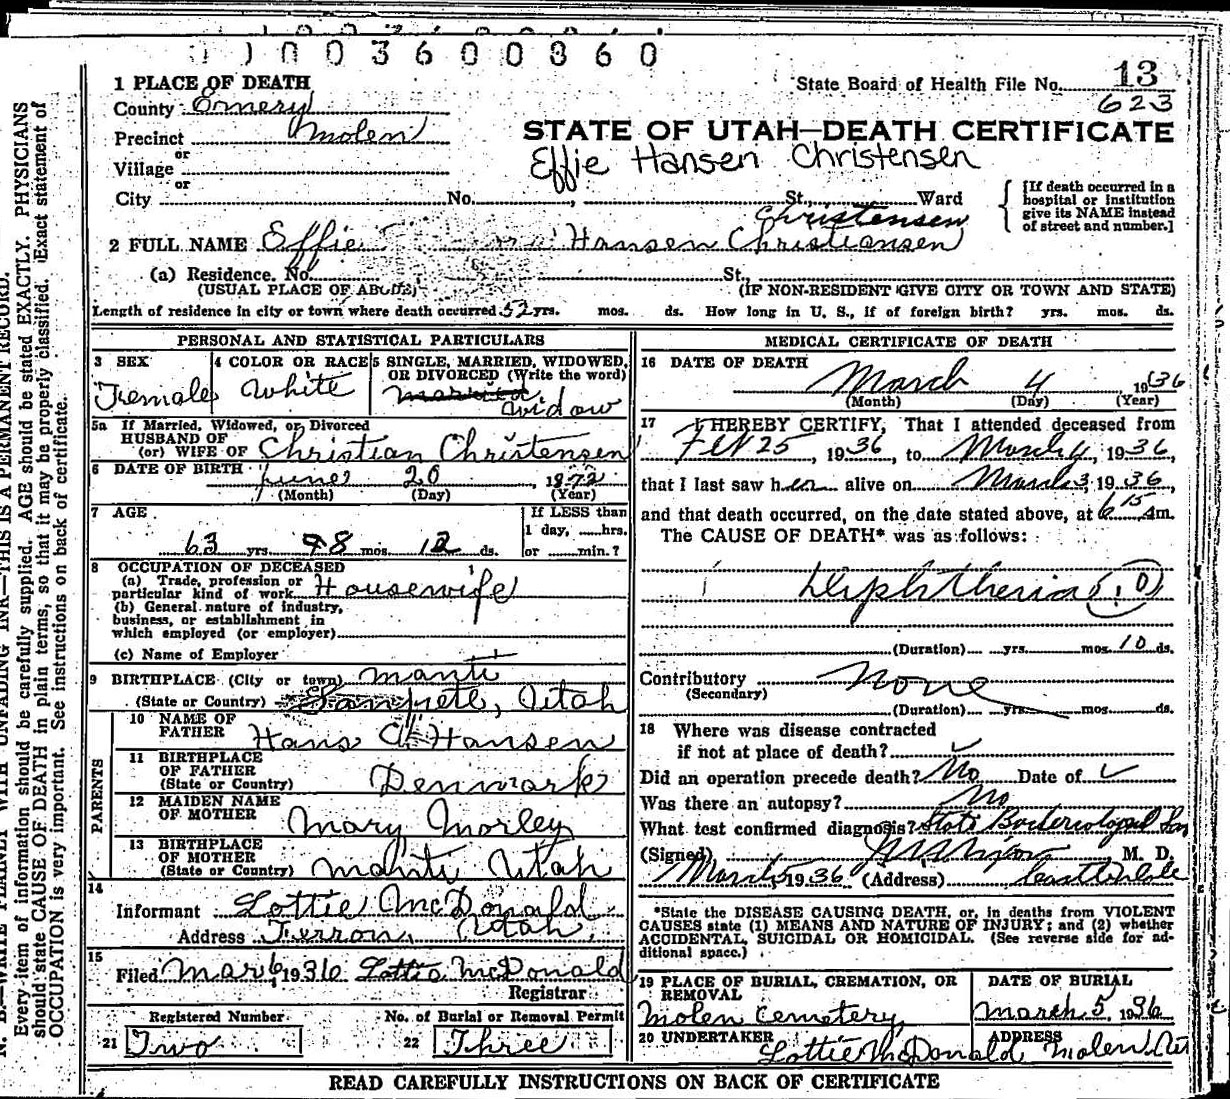 1 1 0 0 3 6 0 0 0 6 0
1 PLACE OF DEATH
State Board of Health File No. 13
623
County Emery
Precinct Molen
STATE OF UTAH—DEATH CERTIFICATE
or
Village
Effie Hansen Christensen
or
City No. , St., Ward
[If death occurred in a hospital or institution give its NAME instead of street and number.]
Christensen
2 FULL NAME Effie Hansen Christiansen
(a) Residence. No. St.,
(USUAL PLACE OF ABODE) (IF NON-RESIDENT GIVE CITY OR TOWN AND STATE)
Length of residence in city or town where death occurred 52 yrs. mos. ds. How long in U. S., if of foreign birth? yrs. mos. ds.
PERSONAL AND STATISTICAL PARTICULARS
3 SEX
Female
4 COLOR OR RACE
White
5 SINGLE, MARRIED, WIDOWED,
OR DIVORCED (Write the word)
married
Widow
5a If Married, Widowed, or Divorced
HUSBAND OF
(or) WIFE OF Christian Christensen
6 DATE OF BIRTH June 20, 1872
(Month) (Day) (Year)
7 AGE
If LESS than
1 day, hrs.
63 yrs. 8 mos. 12 ds. or min.?
8 OCCUPATION OF DECEASED
(a) Trade, profession or
particular kind of work Housewife
(b) General nature of industry,
business, or establishment in
which employed (or employer)
(c) Name of Employer
9 BIRTHPLACE (City or town) Manti
(State or Country) Sanpete, Utah
PARENTS
10 NAME OF
FATHER Hans A Hansen
11 BIRTHPLACE
OF FATHER
(State or Country) Denmark
12 MAIDEN NAME
OF MOTHER Mary Morley
13 BIRTHPLACE
OF MOTHER
(State or Country) Manti Utah
14
Informant Lottie McDonald
Address Ferron, Utah,
15
Filed Mar 6, 1936 Lottie McDonald
Registrar
Registered Number No. of Burial or Removal Permit
21 Two 22 Three
MEDICAL CERTIFICATE OF DEATH
16 DATE OF DEATH
March 4 1936
(Month) (Day) (Year)
17 I HEREBY CERTIFY, That I attended deceased from
Feb 25, 1936, to March 4, 1936,
that I last saw her alive on March 3, 1936,
and that death occurred, on the date stated above, at 6 15 Am.
The CAUSE OF DEATH* was as follows:
Diphtheria 10
(Duration) yrs. mos. 10 ds.
Contributory None
(Secondary)
(Duration) yrs. mos. ds.
18 Where was disease contracted
if not at place of death?
Did an operation precede death? No Date of
Was there an autopsy? No
What test confirmed diagnosis? State Bacteriological
(Signed) M. D.
March 5 1936 (Address) Castle Dale
*State the DISEASE CAUSING DEATH, or, in deaths from VIOLENT
CAUSES state (1) MEANS AND NATURE OF INJURY; and (2) whether
ACCIDENTAL, SUICIDAL OR HOMICIDAL. (See reverse side for ad-
ditional space.)
19 PLACE OF BURIAL, CREMATION, OR
REMOVAL
Molen Cemetery
DATE OF BURIAL
March 5, 1936
20 UNDERTAKER ADDRESS
Lottie McDonald Molen Ut
READ CAREFULLY INSTRUCTIONS ON BACK OF CERTIFICATE
N. B.—WRITE PLAINLY WITH UNFADING INK—THIS IS A PERMANENT RECORD.
Every item of information should be carefully supplied. AGE should be stated EXACTLY. PHYSICIANS
should state CAUSE OF DEATH in plain terms, so that it may be properly classified. Exact statement of
OCCUPATION is very important. See instructions on back of certificate.